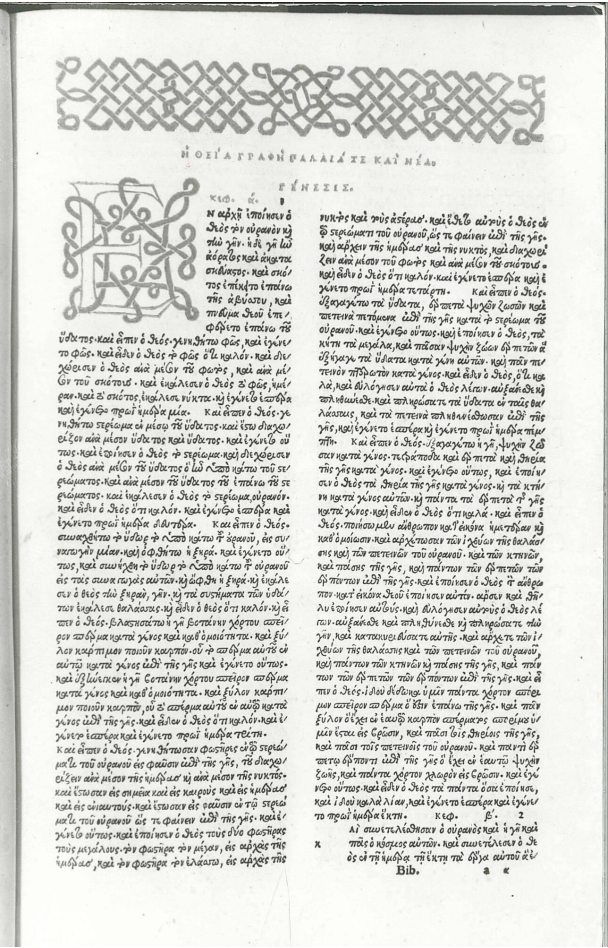 Η ΘΕΙΑ ΓΡΑΦΗ ΠΑΛΑΙΑ ΤΕ ΚΑΙ ΝΕΑ.
ΓΕΝΕΣΙΣ.
κεφ. ά.
ΕΝ ἀρχῇ ἐποίησεν ὁ
θεὸς τὸν οὐρανὸν καὶ
τὴν γῆν. ἡ δὲ γῆ ἦν
ἀόρατος καὶ ἀκατα
σκεύαστος. καὶ σκό/
τος ἐπέκειτο ἐπάνω
τῆς ἀβύσσου, καὶ
πνεῦμα θεοῦ ἐπε/
φέρετο ἐπάνω τοῦ
ὕδατος. καὶ εἶπεν ὁ θεός. γενηθήτω φῶς, καὶ ἐγένε/
το φῶς. καὶ εἶδεν ὁ θεὸς τὸ φῶς ὅτι καλόν. καὶ διε/
χώρισεν ὁ θεὸς ἀνὰ μέσον τοῦ φωτὸς, καὶ ἀνὰ μέ/
σον τοῦ σκότους. καὶ ἐκάλεσεν ὁ θεὸς τὸ φῶς, ἡμέ/
ραν. καὶ τὸ σκότος ἐκάλεσε νύκτα. καὶ ἐγένετο ἑσπέρα
καὶ ἐγένετο πρωῒ ἡμέρα μία. Καὶ εἶπεν ὁ θεός. γε/
νηθήτω στερέωμα ἐν μέσῳ τοῦ ὕδατος. καὶ ἔστω διαχω/
ρίζον ἀνὰ μέσον ὕδατος καὶ ὕδατος. καὶ ἐγένετο οὕ/
τως. καὶ ἐποίησεν ὁ θεὸς τὸ στερέωμα. καὶ διεχώρισεν
ὁ θεὸς ἀνὰ μέσον τοῦ ὕδατος ὃ ἦν ὑποκάτω τοῦ στε/
ρεώματος. καὶ ἀνὰ μέσον τοῦ ὕδατος τοῦ ἐπάνω τοῦ στε
ρεώματος. καὶ ἐκάλεσεν ὁ θεὸς τὸ στερέωμα, οὐρανόν.
καὶ εἶδεν ὁ θεὸς ὅτι καλόν. καὶ ἐγένετο ἑσπέρα καὶ
ἐγένετο πρωῒ ἡμέρα δευτέρα. Καὶ εἶπεν ὁ θεός.
συναχθήτω τὸ ὕδωρ τὸ ὑποκάτω τοῦ οὐρανοῦ, εἰς συ/
ναγωγὴν μίαν. καὶ ὀφθήτω ἡ ξηρά. καὶ ἐγένετο οὕ/
τως, καὶ συνήχθη τὸ ὕδωρ τὸ ὑποκάτω τοῦ οὐρανοῦ
εἰς τὰς συναγωγὰς αὐτῶν. καὶ ὤφθη ἡ ξηρά. καὶ ἐκάλε
σεν ὁ θεὸς τὴν ξηρὰν, γῆν. καὶ τὰ συστήματα τῶν ὑδά/
των ἐκάλεσε θαλάσσας. καὶ εἶδεν ὁ θεὸς ὅτι καλόν. καὶ εἶ
πεν ὁ θεός. βλαστησάτω ἡ γῆ βοτάνην χόρτου σπεῖ/
ρον σπέρμα κατὰ γένος καὶ καθ' ὁμοιότητα. καὶ ξύ/
λον κάρπιμον ποιοῦν καρπὸν. οὗ τὸ σπέρμα αὐτοῦ ἐν
αὐτῷ κατὰ γένος ἐπὶ τῆς γῆς. καὶ ἐγένετο οὕτως.
καὶ ἐξήνεγκεν ἡ γῆ βοτάνην χόρτου σπεῖρον σπέρμα
κατὰ γένος καὶ καθ' ὁμοιότητα. καὶ ξύλον κάρπι/
μον ποιοῦν καρπὸν, οὗ τὸ σπέρμα αὐτοῦ ἐν αὐτῷ κατὰ
γένος ἐπὶ τῆς γῆς. καὶ εἶδεν ὁ θεὸς ὅτι καλόν. καὶ ἐ/
γένετο ἑσπέρα καὶ ἐγένετο πρωῒ ἡμέρα τρίτη.
Καὶ εἶπεν ὁ θεός. γενηθήτωσαν φωστῆρες ἐν τῷ στερεώ/
ματι τοῦ οὐρανοῦ εἰς φαῦσιν ἐπὶ τῆς γῆς, τοῦ διαχω/
ρίζειν ἀνὰ μέσον τῆς ἡμέρας καὶ ἀνὰ μέσον τῆς νυκτός.
καὶ ἔστωσαν εἰς σημεῖα καὶ εἰς καιροὺς καὶ εἰς ἡμέρας
καὶ εἰς ἐνιαυτούς. καὶ ἔστωσαν εἰς φαῦσιν ἐν τῷ στερεώ/
ματι τοῦ οὐρανοῦ ὥς τε φαίνειν ἐπὶ τῆς γῆς. καὶ ἐ/
γένετο οὕτως. καὶ ἐποίησεν ὁ θεὸς τοὺς δύο φωστῆρας
τοὺς μεγάλους. τὸν φωστῆρα τὸν μέγαν, εἰς ἀρχὰς τῆς
ἡμέρας, καὶ τὸν φωστῆρα τὸν ἐλάσσω, εἰς ἀρχὰς τῆς
νυκτὸς καὶ τοὺς ἀστέρας. καὶ ἔθετο αὐτοὺς ὁ θεὸς ἐν
τῷ στερεώματι τοῦ οὐρανοῦ, ὥς τε φαίνειν ἐπὶ τῆς γῆς.
καὶ ἄρχειν τῆς ἡμέρας καὶ τῆς νυκτὸς, καὶ διαχωρί
ζειν ἀνὰ μέσον τοῦ φωτὸς καὶ ἀνὰ μέσον τοῦ σκότους.
καὶ εἶδεν ὁ θεὸς ὅτι καλόν. καὶ ἐγένετο ἑσπέρα καὶ ἐ
γένετο πρωῒ ἡμέρα τετάρτη. Καὶ εἶπεν ὁ θεός.
ἐξαγαγέτω τὰ ὕδατα, ἑρπετὰ ψυχῶν ζωσῶν καὶ
πετεινὰ πετόμενα ἐπὶ τῆς γῆς κατὰ τὸ στερέωμα τοῦ
οὐρανοῦ. καὶ ἐγένετο οὕτως. καὶ ἐποίησεν ὁ θεὸς, τὰ
κήτη τὰ μεγάλα, καὶ πᾶσαν ψυχὴν ζώων ἑρπετῶν ἃ
ἐξήγαγε τὰ ὕδατα κατὰ γένη αὐτῶν. καὶ πᾶν πε/
τεινὸν πτερωτὸν κατὰ γένος. καὶ εἶδεν ὁ θεὸς, ὅτι κα
λὰ, καὶ εὐλόγησεν αὐτὰ ὁ θεὸς λέγων. αὐξάνεσθε καὶ
πληθύνεσθε. καὶ πληρώσατε τὰ ὕδατα ἐν ταῖς θα/
λάσσαις, καὶ τὰ πετεινὰ πληθυνέσθωσαν ἐπὶ τῆς
γῆς, καὶ ἐγένετο ἑσπέρα καὶ ἐγένετο πρωῒ ἡμέρα πέμ/
πτη. Καὶ εἶπεν ὁ θεός. ἐξαγαγέτω ἡ γῆ, ψυχὴν ζῶ
σαν κατὰ γένος. τετράποδα καὶ ἑρπετὰ καὶ θηρία
τῆς γῆς κατὰ γένος. καὶ ἐγένετο οὕτως, καὶ ἐποίη/
σεν ὁ θεὸς τὰ θηρία τῆς γῆς κατὰ γένος. καὶ τὰ κτή/
νη κατὰ γένος αὐτῶν. καὶ πάντα τὰ ἑρπετὰ τῆς γῆς
κατὰ γένος. καὶ εἶδεν ὁ θεὸς ὅτι καλά. καὶ εἶπεν ὁ
θεός. ποιήσωμεν ἄνθρωπον κατ' εἰκόνα ἡμετέραν καὶ
καθ' ὁμοίωσιν. καὶ ἀρχέτωσαν τῶν ἰχθύων τῆς θαλάσ/
σης καὶ τῶν πετεινῶν τοῦ οὐρανοῦ. καὶ τῶν κτηνῶν,
καὶ πάσης τῆς γῆς, καὶ πάντων τῶν ἑρπετῶν τῶν
ἑρπόντων ἐπὶ τῆς γῆς. καὶ ἐποίησεν ὁ θεὸς τὸν ἄνθρω
πον. κατ' εἰκόνα θεοῦ ἐποίησεν αὐτόν. ἄρσεν καὶ θῆ/
λυ ἐποίησεν αὐτούς. καὶ εὐλόγησεν αὐτοὺς ὁ θεὸς λέ
γων. αὐξάνεσθε καὶ πληθύνεσθε καὶ πληρώσατε τὴν
γῆν, καὶ κατακυριεύσατε αὐτῆς. καὶ ἄρχετε τῶν ἰ/
χθύων τῆς θαλάσσης καὶ τῶν πετεινῶν τοῦ οὐρανοῦ,
καὶ πάντων τῶν κτηνῶν καὶ πάσης τῆς γῆς, καὶ πάν
των τῶν ἑρπετῶν τῶν ἑρπόντων ἐπὶ τῆς γῆς. καὶ εἶ
πεν ὁ θεός. ἰδοὺ δέδωκα ὑμῖν πάντα χόρτον σπόρι
μον σπεῖρον σπέρμα ὅ ἐστιν ἐπάνω τῆς γῆς. καὶ πᾶν
ξύλον ὃ ἔχει ἐν ἑαυτῷ καρπὸν σπέρματος σπορίμου ὑ/
μῖν ἔσται εἰς βρῶσιν, καὶ πᾶσι τοῖς θηρίοις τῆς γῆς,
καὶ πᾶσι τοῖς πετεινοῖς τοῦ οὐρανοῦ. καὶ παντὶ ἑρ
πετῷ ἕρποντι ἐπὶ τῆς γῆς ὃ ἔχει ἐν ἑαυτῷ ψυχὴν
ζωῆς, καὶ πάντα χόρτον χλωρὸν εἰς βρῶσιν. καὶ ἐγέ/
νετο οὕτως. καὶ εἶδεν ὁ θεὸς τὰ πάντα ὅσα ἐποίησε,
καὶ ἰδοὺ καλὰ λίαν, καὶ ἐγένετο ἑσπέρα καὶ ἐγένε/
το πρωῒ ἡμέρα ἕκτη. Κεφ. β'. 2
Αὶ συνετελέσθησαν ὁ οὐρανὸς καὶ ἡ γῆ καὶ
κ πᾶς ὁ κόσμος αὐτῶν. καὶ συνετέλεσεν ὁ θε
ὸς ἐν τῇ ἡμέρᾳ τῇ ἕκτῃ τὰ ἔργα αὐτοῦ ἃ ἐ/
Bib. a α